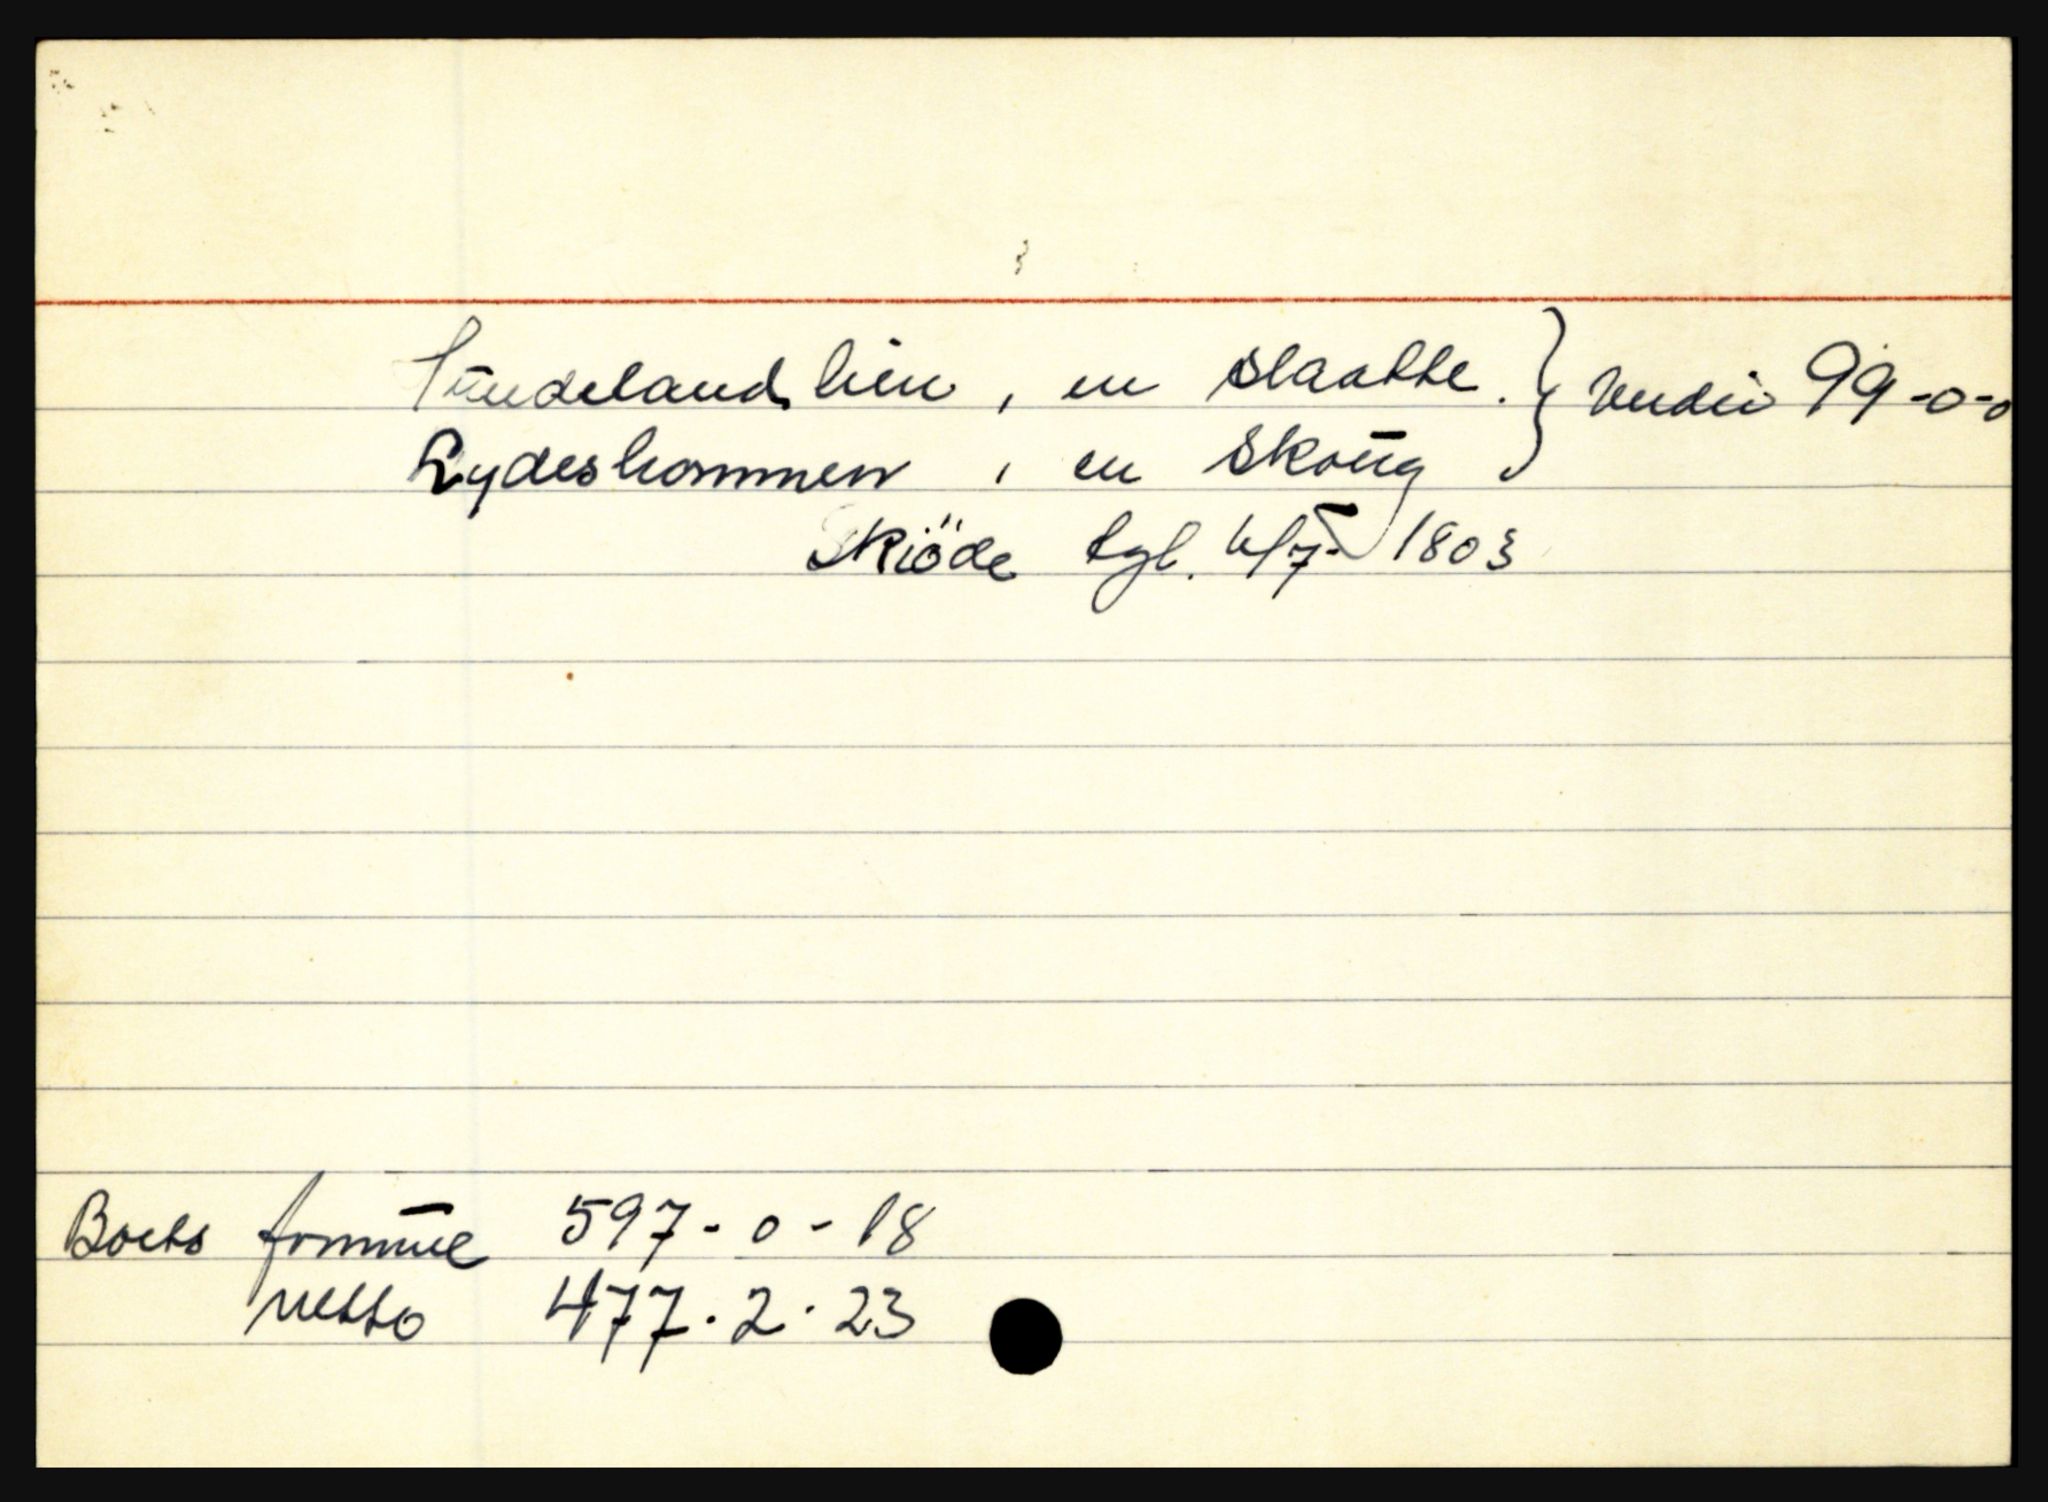 Sundelandslien, en slaatte. } Verdi 99-0-0
Rydeshommen, en Skoug
Skiöde tgl. 4/7- 1803
Boets formue 597-0-18
netto 477.2.23